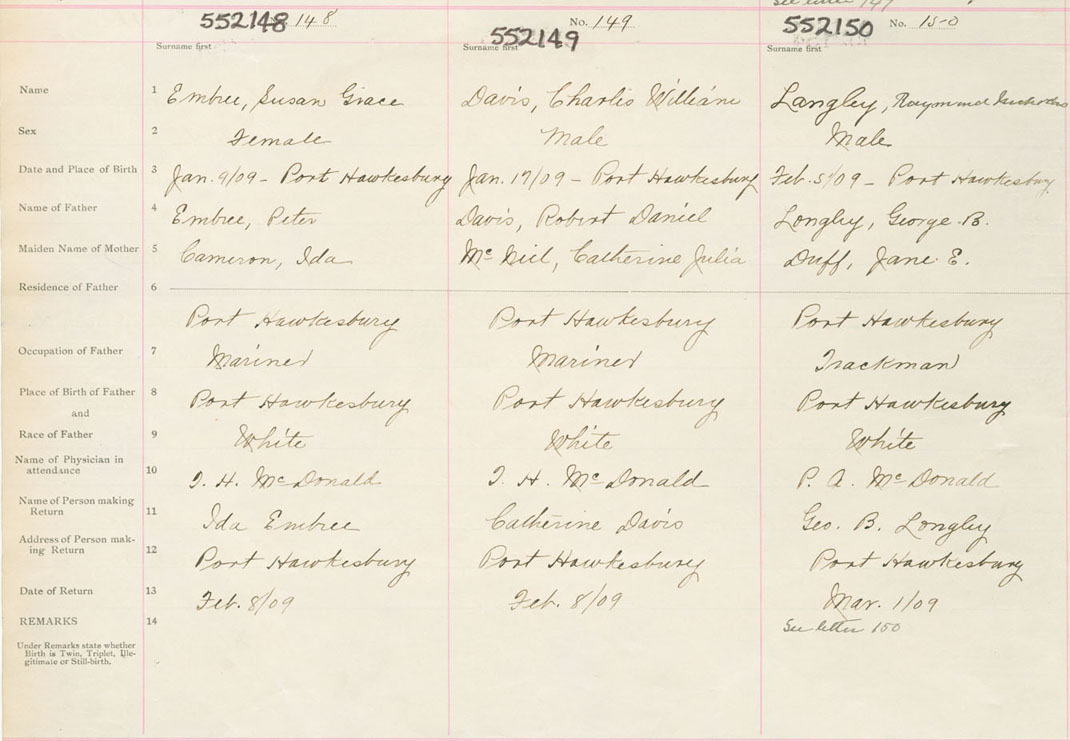 See letter 147
552148 148
No. 149
552149
552150 No. 150
Surname first
Surname first
Surname first
Name 1 Embree, Susan Grace Davis, Charlis William Langley, Raymond
Sex 2 Female Male Male
Date and Place of Birth 3 Jan. 9/09 - Port Hawkesbury Jan. 17/09 - Port Hawkesbury Feb. 5/09 - Port Hawkesbury
Name of Father 4 Embree, Peter Davis, Robert Daniel Longley, George B.
Maiden Name of Mother 5 Cameron, Ida McNeil, Catherine Julia Duff, Jane E.
Residence of Father 6
Port Hawkesbury Port Hawkesbury Port Hawkesbury
Occupation of Father 7 Mariner Mariner Trackman
Place of Birth of Father 8 Port Hawkesbury Port Hawkesbury Port Hawkesbury
and
Race of Father 9 White White White
Name of Physician in
attendance 10 J. H. McDonald J. H. McDonald P. A. McDonald
Name of Person making
Return 11 Ida Embree Catherine Davis Geo. B. Longley
Address of Person mak-
ing Return 12 Port Hawkesbury Port Hawkesbury Port Hawkesbury
Date of Return 13 Feb. 8/09 Feb. 8/09 Mar. 1/09
REMARKS 14 See letter 150
Under Remarks state whether
Birth is Twin, Triplet, Ille-
gitimate or Still-birth.